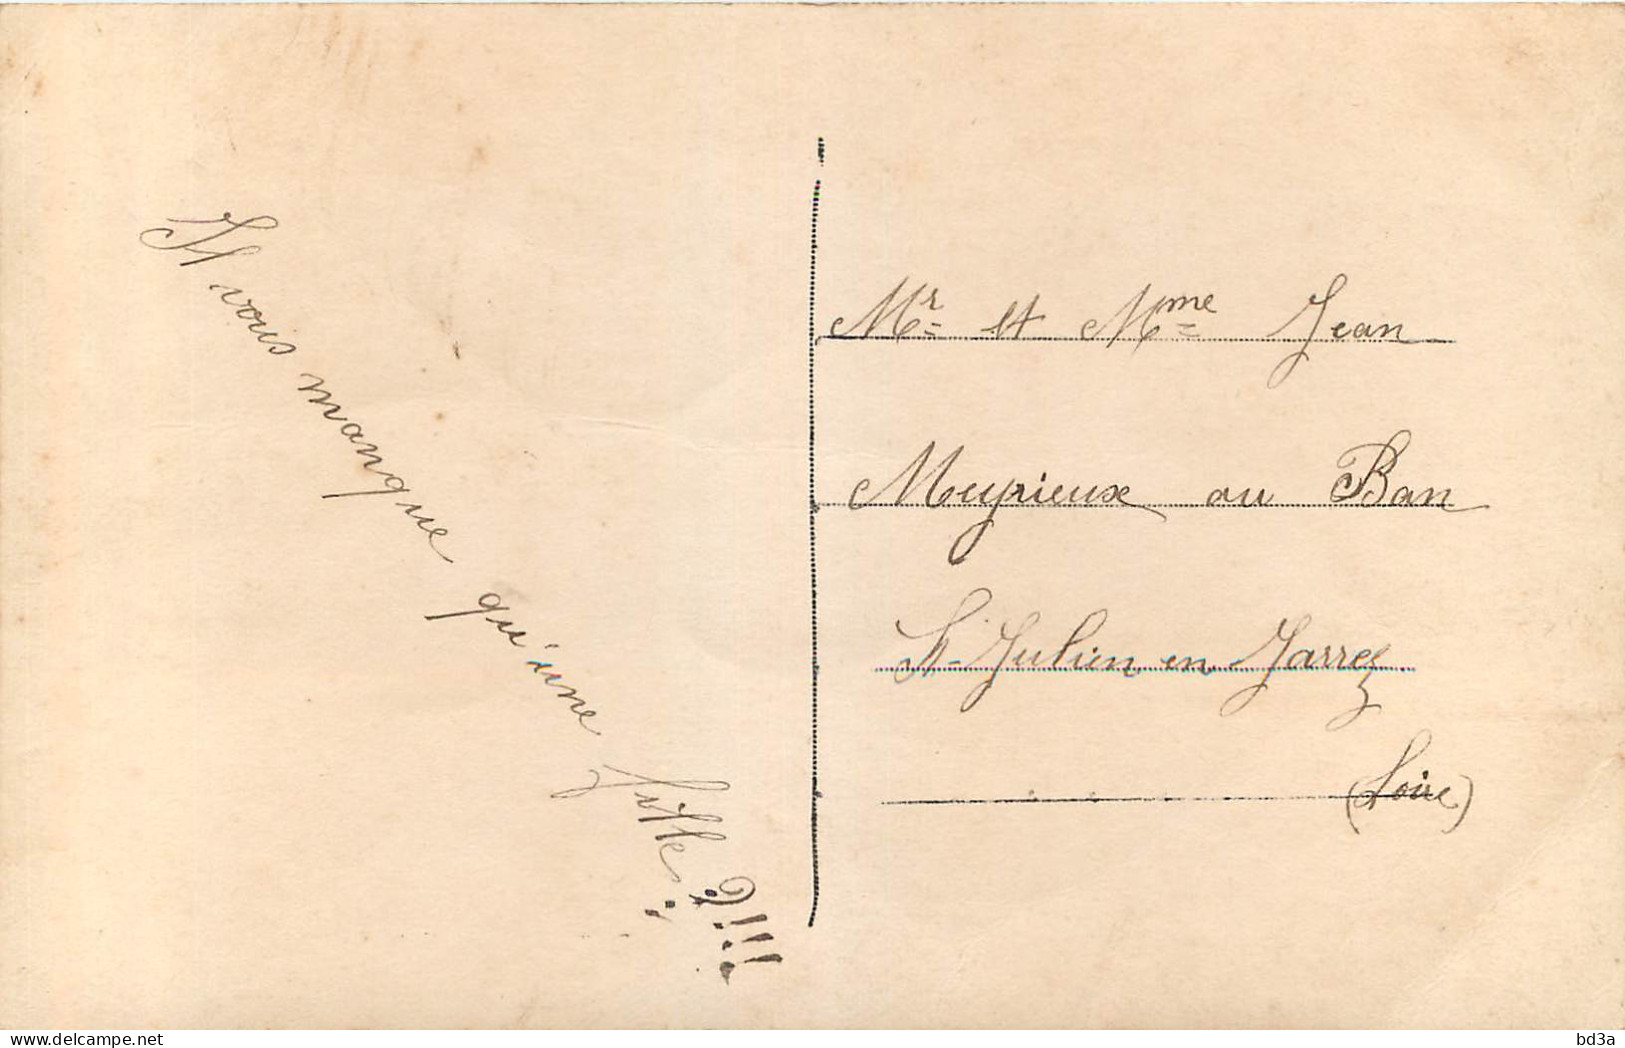 Il vous manque qu'une fille ?!!!
Mr et Mme Jean
Meyrieux au Ban
St-Julien en Jarrez
(Loire)
www.delcampe.net
bd3a